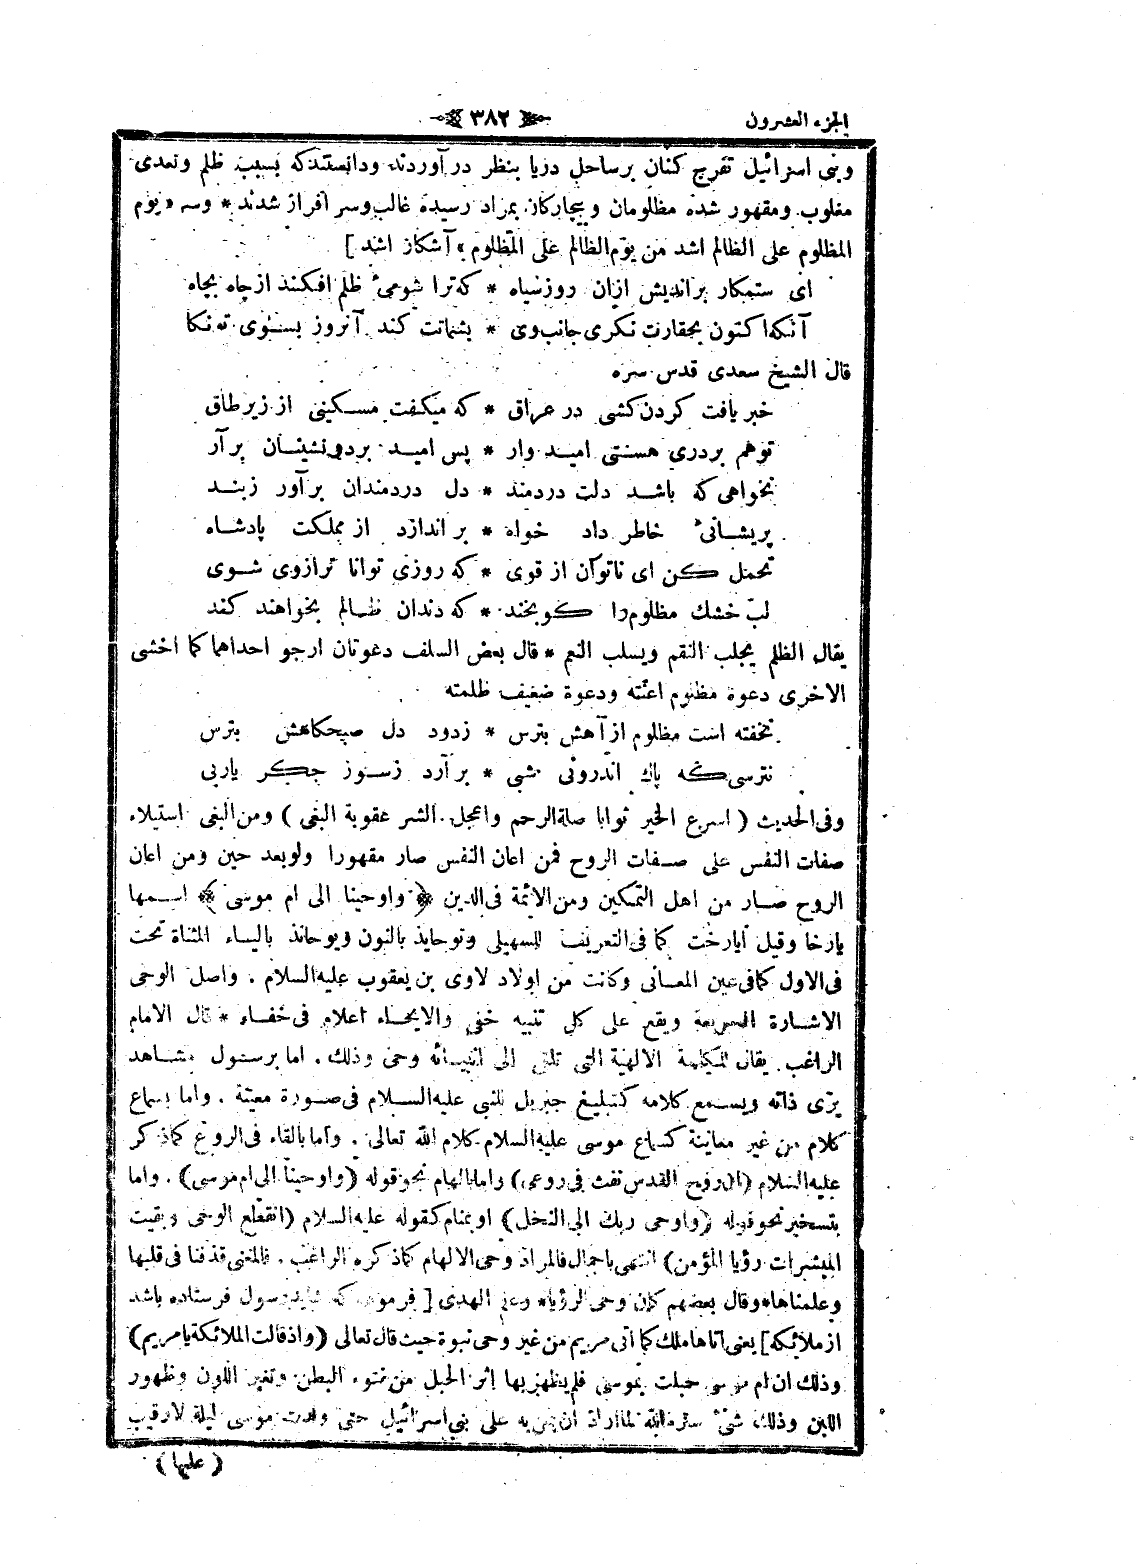 الجزء العشرون
٣٨٢
وبنى اسرائيل تفرج كنان برساحل دريا بنظر در آوردند ودانستندكه بسبب ظلم وتعدى
مغلوب ومقهور شده مظلومان وبيچاركان بمراد رسيده غالب وسر افراز شدند * وسر « يوم
المظلوم على الظالم اشد من يوم الظالم على المظلوم » آشكار اشد ]
اى ستمكار بر انديش ازان روز سياه * كه ترا شومىء ظلم افكند از چاه بچاه
آنكه اكنون بحقارت نكرى جانب وى * بشماتت كند آنروز بسوى تو نكا
قال الشيخ سعدى قدس سره
خبر يافت كردن كشى در عراق * كه ميكفت مسكينى از زير طاق
توهم بردرى هستى اميد وار * پس اميد بردر نشينان بر آر
نخواهى كه باشد دلت دردمند * دل دردمندان بر آور زبند
پريشانىء خاطر داد خواه * بر اندازد از مملكت پادشاه
تحمل كن اى ناتوان از قوى * كه روزى توانا ترازوى شوى
لب خشك مظلوم را كو بخند * كه دندان ظالم بخواهند كند
يقال الظلم يجلب النقم ويسلب النعم * قال بعض السلف دعوتان ارجو احداهما كما اخشى
الاخرى دعوة مظلوم اعنته ودعوة ضعيف ظلمته
نخفته است مظلوم از آهش بترس * زدود دل صبحكاهش بترس
نترسى كه پاك اندرونى شبى * بر آرد زسوز جكر ياربى
وفى الحديث ( اسرع الخير ثوابا صلة الرحم واعجل الشر عقوبة البغى ) ومن البغى استيلاء
صفات النفس على صفات الروح فمن اعان النفس صار مقهورا ولو بعد حين ومن اعان
الروح صار من اهل التمكين ومن الائمة فى الدين ﴿ واوحينا الى ام موسى ﴾ اسمها
يارخا وقيل ايارخت كما فى التعريف للسهيلى ونوحايذ بالنون ويوحانذ بالياء المثناة تحت
فى الاول كما فى عين المعانى وكانت من اولاد لاوى بن يعقوب عليه السلام . واصل الوحى
الاشارة السريعة ويقع على كل تنبيه خفى والايحاء اعلام فى خفاء * قال الامام
الراغب يقال للكلمة الالهية التى تلقى الى انبيائه وحى وذلك . اما برسول مشاهد
يرى ذاته ويسمع كلامه كتبليغ جبريل للنبى عليه السلام فى صورة معينة . واما بسماع
كلام من غير معاينة كسماع موسى عليه السلام كلام الله تعالى . واما بالقاء فى الروع كما ذكر
عليه السلام (ان روح القدس نفث فى روعى) واما بالهام نحو قوله (واوحينا الى ام موسى) . واما
بتسخير نحو قوله (واوحى ربك الى النحل) او بمنام كقوله عليه السلام (انقطع الوحى وبقيت
المبشرات رؤيا المؤمن) انتهى باجمال فالمراد وحى الالهام كما ذكره الراغب . فالمعنى قذفنا فى قلبها
وعلمناها * وقال بعضهم كان وحى الرؤيا * وعلم الهدى [ فرموده كه شايد رسول فرستاده باشد
از ملائكه ] يعنى اتاها ملك كما اتى مريم من غير وحى نبوة حيث قال تعالى (واذ قالت الملائكة يا مريم)
وذلك ان ام موسى حبلت بموسى فلم يظهر بها اثر الحبل من نتوء البطن وتغير اللون وظهور
اللبن وذلك شئ ستره الله لما اراد ان يمن به على بنى اسرائيل حتى ولدت موسى ليلة لا رقيب
( عليها )